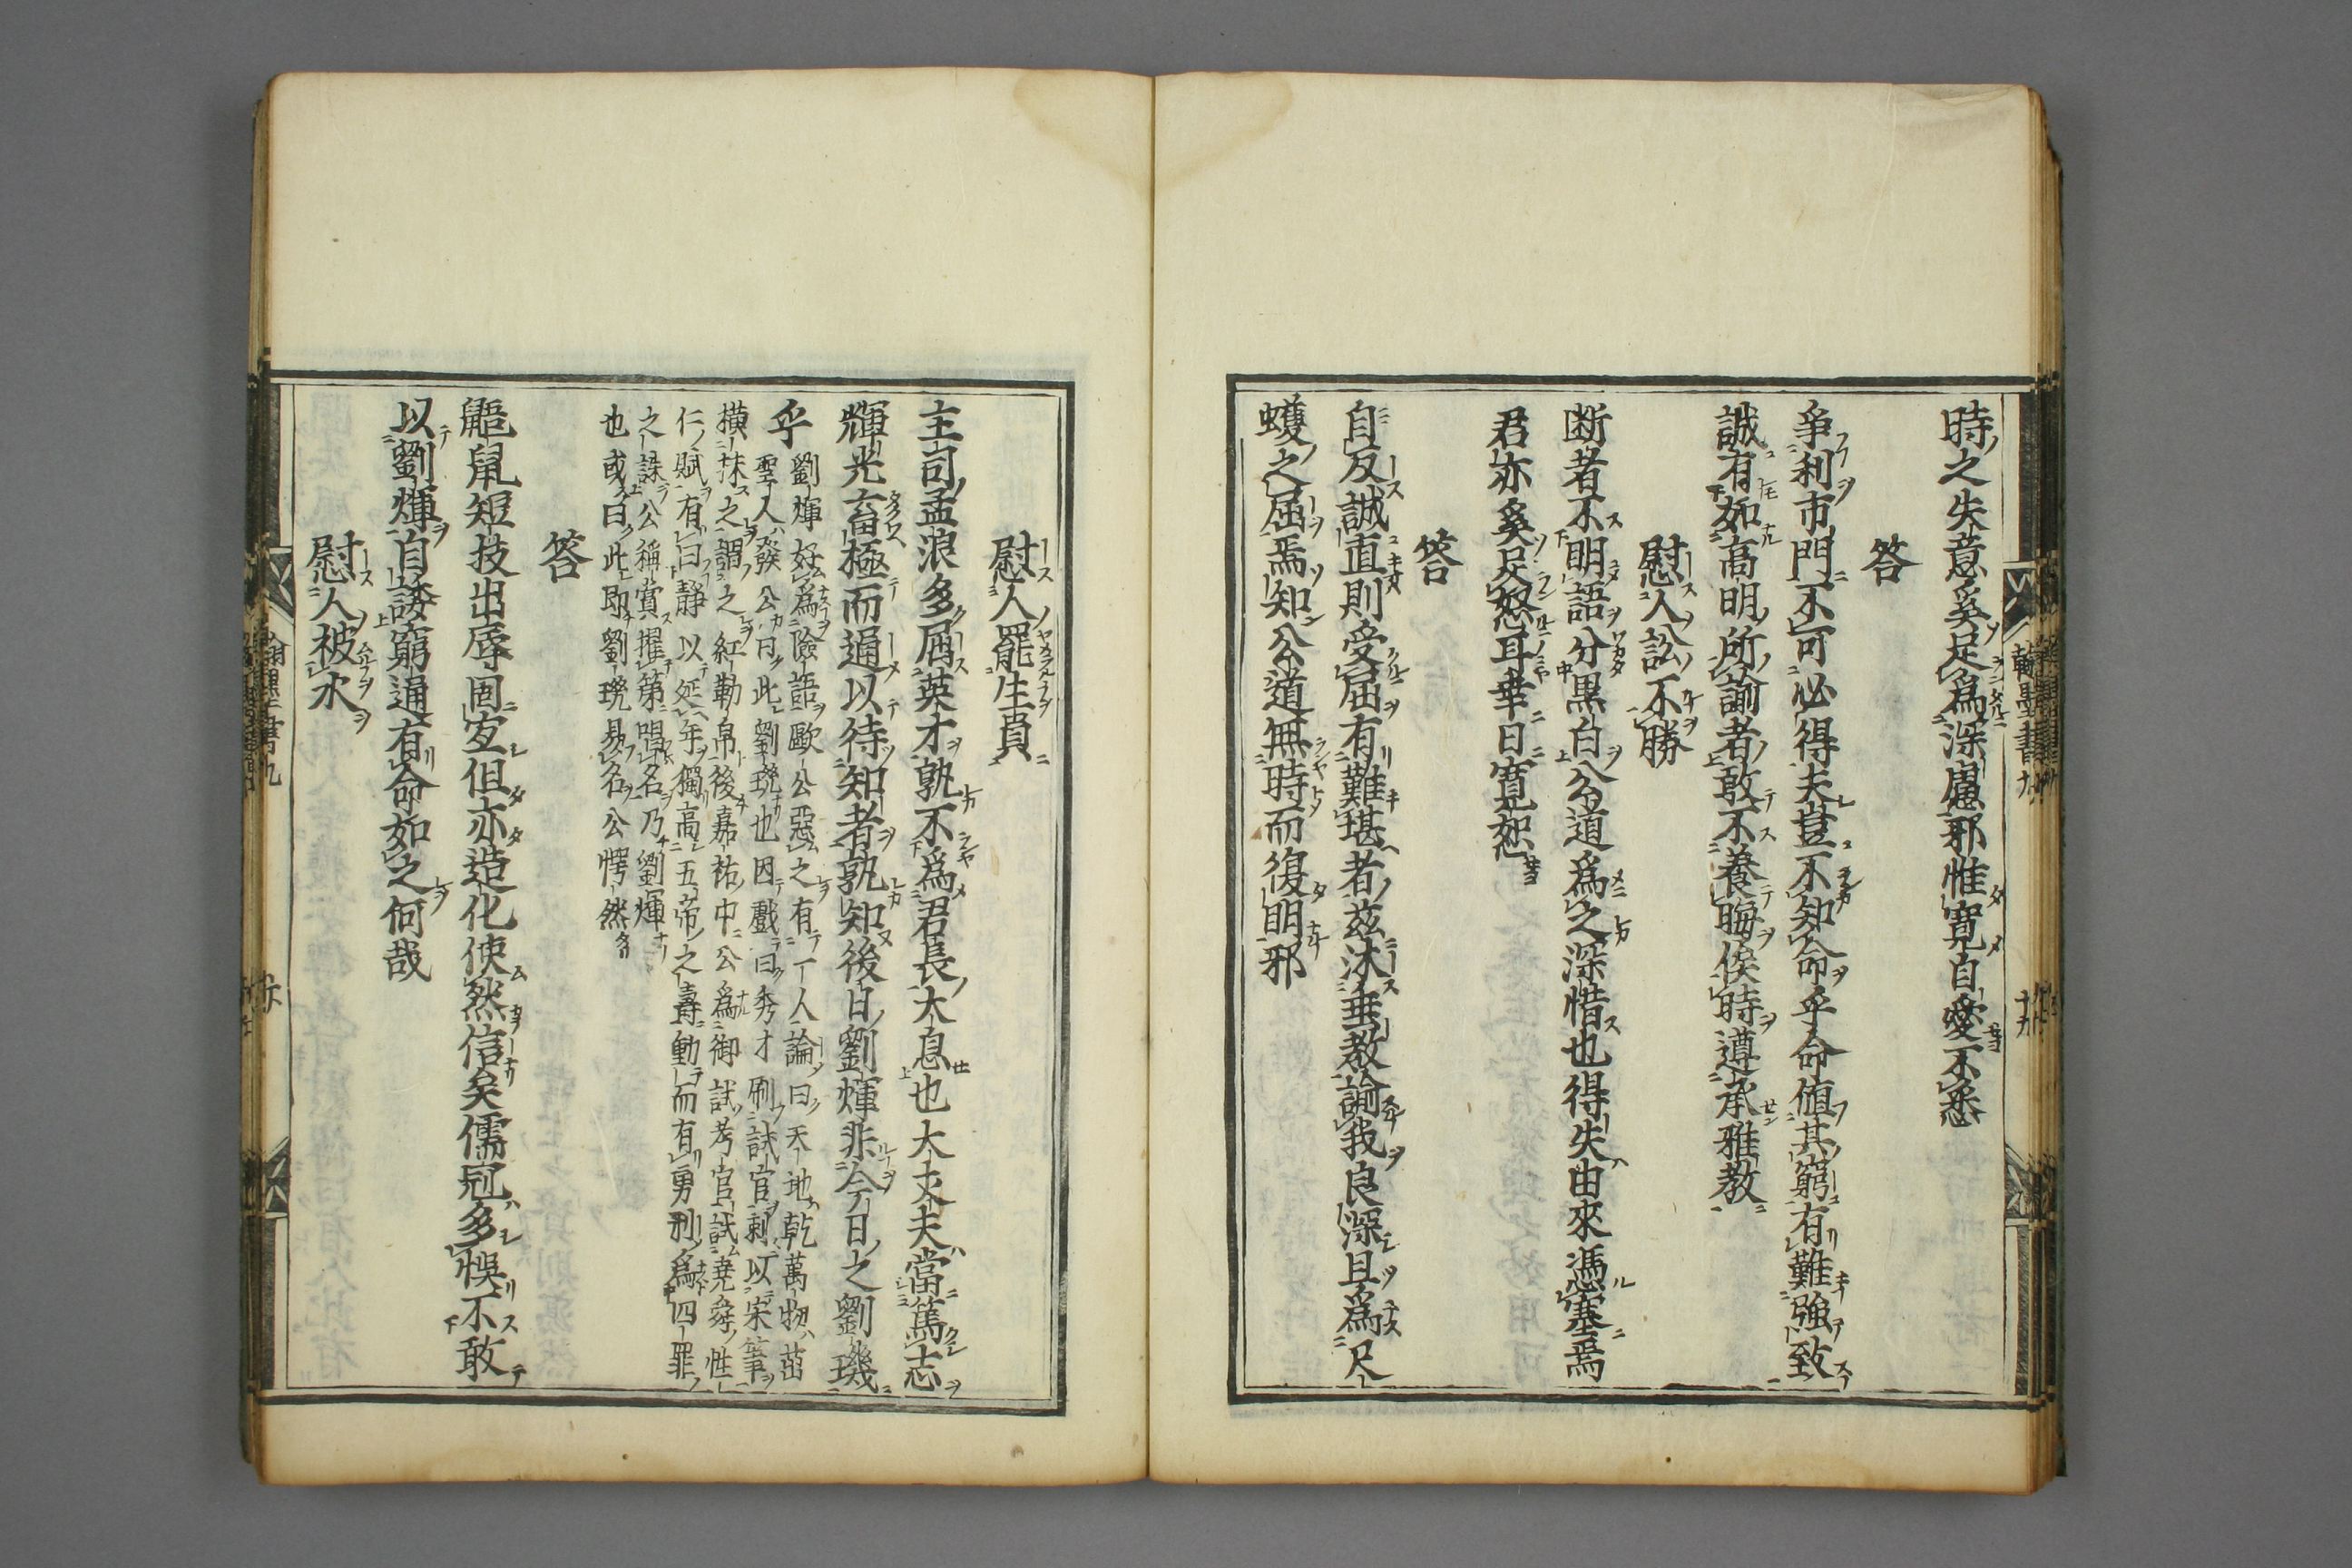 時之失意奚足爲深慮邪惟寛自愛不悉
答
爭利市門不可必得夫豈不知命乎命値其窮有難強致
誠有如高明所諭者敢不養晦俟時遵承雅教
慰人訟不勝
断者不明語分黒白公道爲之深惜也得失由來馮塞焉
君亦奚足怒耳幸日寛恕
答
自反誠直則受屈有難堪者茲沐垂教諭我良深且爲尺
蠖之屈焉知公道無時而復明邪
慰人罷生員
主司孟浪多屈英才孰不爲君長太息也大丈夫當篤志
輝光畜極而通以待知者孰知後日劉煇非今日之劉璣
乎
劉煇好爲險語歐公惡之有一人論曰天地乾萬物茁
聖人發公曰此劉璣也因戲曰秀才刷試官剌以宋筆
横抹之謂之紅勒帛後嘉祐中公爲御試考官試堯舜性
仁賦有曰靜以延年獨高五帝之壽動而有勇刑爲四罪
之誅公稱賞擢第唱名乃劉煇
也或曰此即劉璣易名公愕然
答
鼯鼠短技出辱固宜但亦造化使然信矣儒冠多悞不敢
以劉煇自諉窮通有命如之何哉
慰人被水
翰墨書九